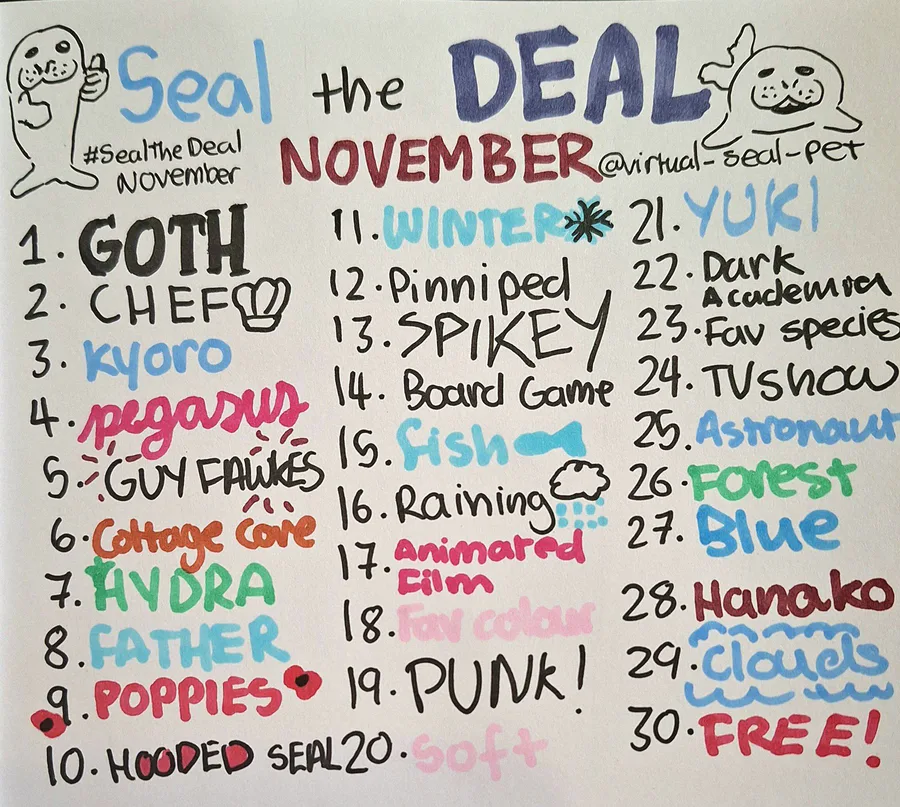 Seal the DEAL
#SealTheDeal
November
NOVEMBER
@virtual-seal-pet
1. GOTH
2. CHEF
3. Kyoro
4. pegasus
5. GUY FAWKES
6. Cottage Core
7. HYDRA
8. FATHER
9. POPPIES
10. HOODED SEAL
11. WINTER
12. Pinniped
13. SPIKEY
14. Board Game
15. fish
16. Raining
17. Animated
Film
18. Fav colour
19. PUNK!
20. Soft
21. YUKI
22. Dark
Academia
23. Fav species
24. TV show
25. Astronaut
26. Forest
27. Blue
28. Hanako
29. Clouds
30. FREE!